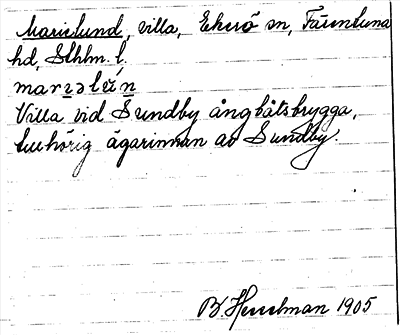 Marielund, villa, Ekerö sn, Färentuna
hd, Sthlm. l.
Villa vid Sundby ångbåtsbrygga,
tillhörig ägarinnan av Sundby.
B. Hesselman 1905